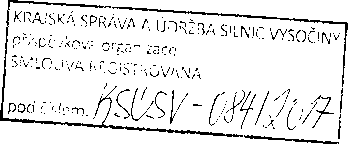 KRAJSKÁ SPRÁVA A ÚDRŽBA SILNIC VYSOČINY
příspěvková organizace
SMLOUVA REGISTROVÁNA
pod číslem: KSÚSV - 084/2017